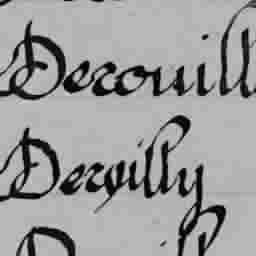 Derouill
Dervilly